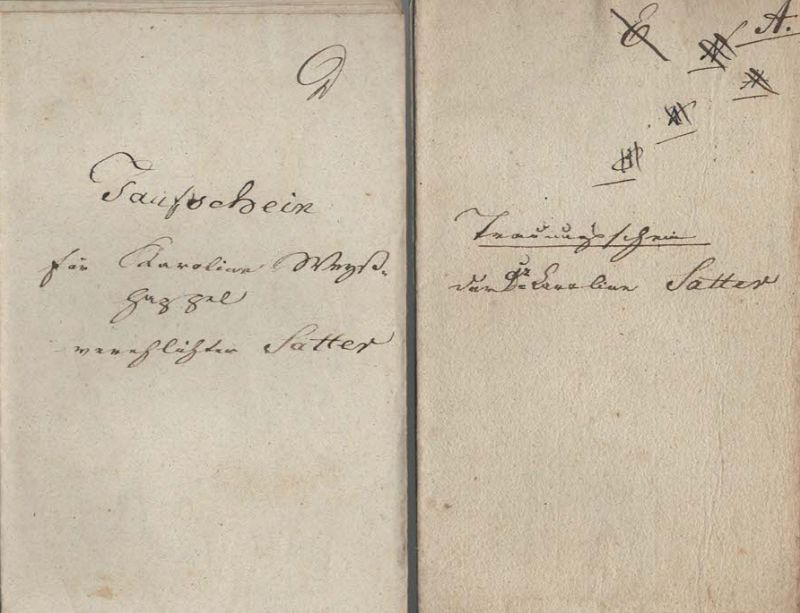 D
Taufschein
für Karoline Weyß=
happel
verehlichter Satter
E A.
Trauungsschein
der Karoline Satter